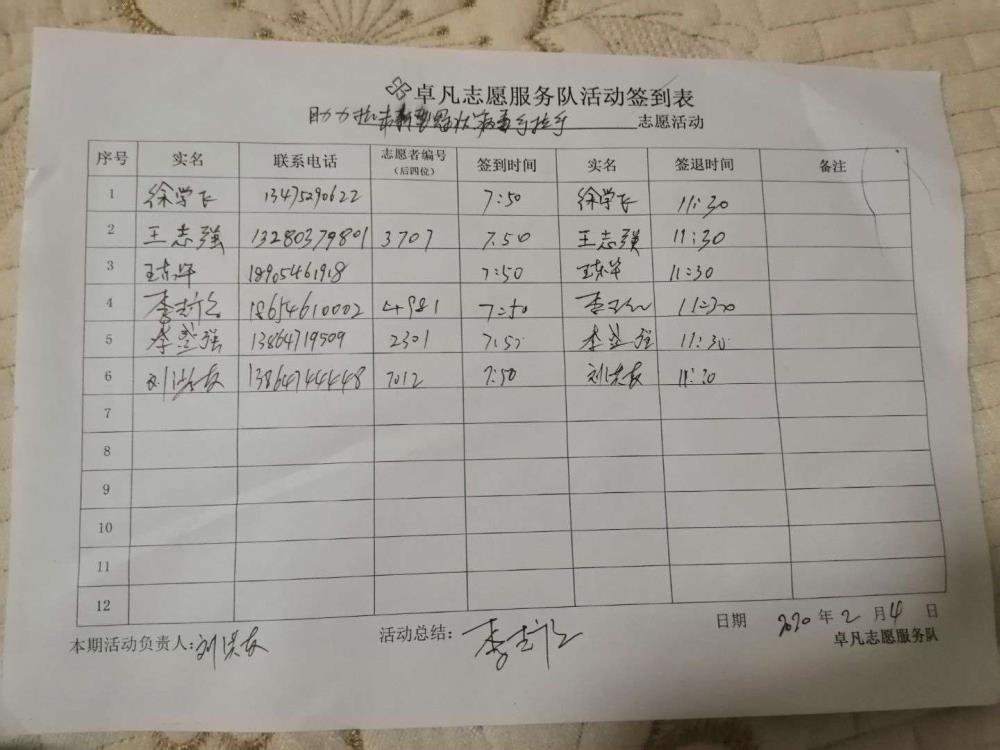 卓凡志愿服务队活动签到表
助力抗击新型冠状病毒 志愿活动
序号 实名 联系电话 志愿者编号（后四位） 签到时间 实名 签退时间 备注
1 徐学飞 13475290622 7:50 徐学飞 11:30
2 王志强 13280379801 3707 7.50 王志强 11:30
3 18905461918 7:50 11:30
4 18654610002 4981 7:50 11:30
5 李 强 13864719509 2301 7:5 李 强 11:30
6 刘洪友 13864744448 7012 7:50 刘洪友 11:30
7
8
9
10
11
12
本期活动负责人:刘洪友 活动总结: 日期 2020 年 2 月 4 日
卓凡志愿服务队